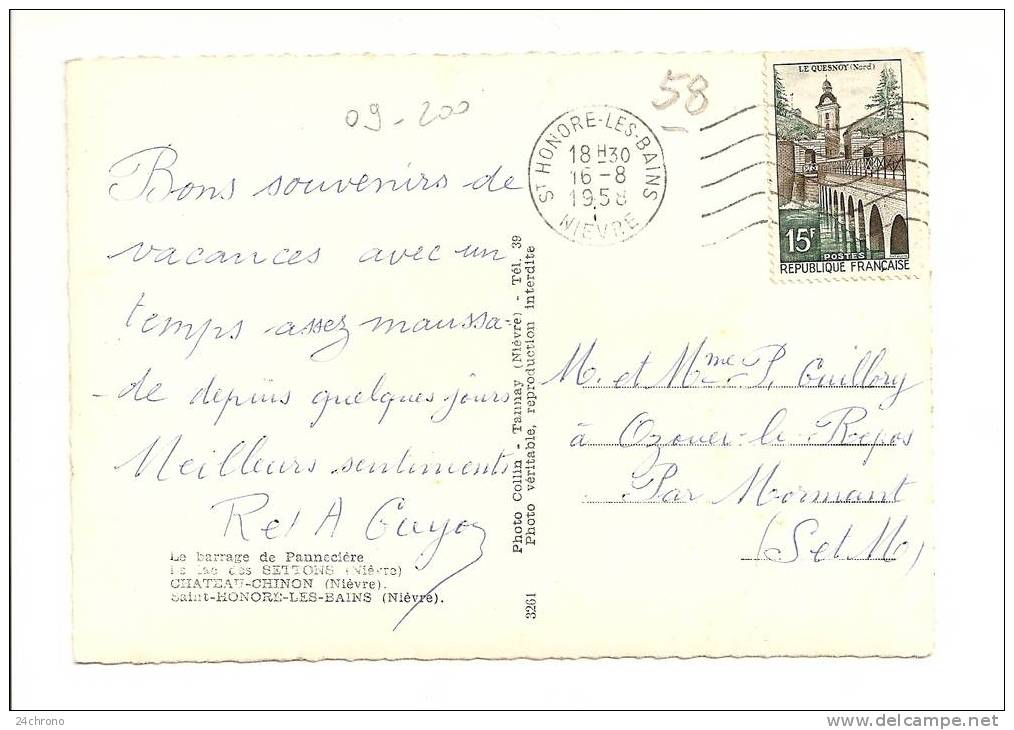 09-200
58
LE QUESNOY (Nord)
15F
POSTES
RÉPUBLIQUE FRANÇAISE
ST HONORE-LES-BAINS
18H30
16-8
1958
NIEVRE
Bons souvenirs de
vacances avec un
temps assez maussa-
-de depuis quelques jours
Meilleurs sentiments
R et A Guyoz
Le barrage de Pannecière
Le lac des SETTONS (Nièvre)
CHATEAU-CHINON (Nièvre).
Saint-HONORE-LES-BAINS (Nièvre).
Photo Collin - Tannay (Nièvre) - Tél. 39
Photo véritable, reproduction interdite
3261
M. et Mme P. Guillory
à Ozouer-le-Repos
Par Mormant
(S et M)
24chrono
www.delcampe.net